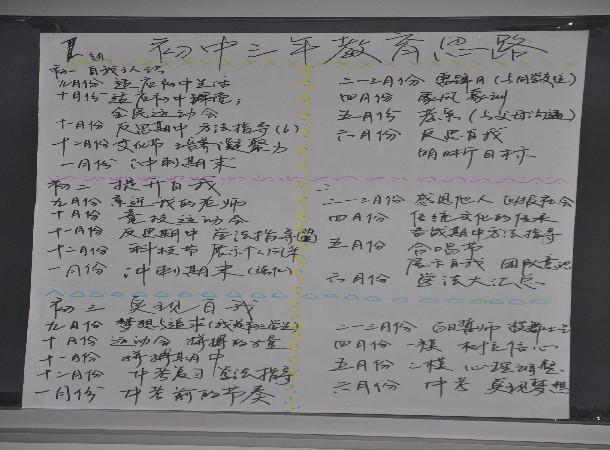 1组 初中三年教育思路
初一 自我认识
九月份 适应初中生活
十月份 适应初中课堂;
全民运动会
十一月份 反思期中 方法指导(6)
十二月份 文化节 培养凝聚力
一月份 冲刺期末
二-三月份 雷锋月
四月份 家风家训
五月份 音乐(与父母沟通)
六月份 反思自我
明晰目标
初二 提升自我
九月份 亲近我的老师
十月份 竞技运动会
十一月份 反思期中 学法指导
十二月份 科技节 展示个人
一月份 冲刺期末(强化)
二-三月份 感恩他人 回报社会
四月份 传统文化的传承
备战期中方法指导
五月份 合唱节
展示自我 团队意识
六月份 学法大汇总
初三 实现自我
九月份 梦想与追求
十月份 运动会 拼搏的力量
十一月份 拼搏期中
十二月份 中考复习 学法指导
一月份 中考前的节奏
二-三月份 百日誓师
四月份 一模 树立信心
五月份 二模 心理调整
六月份 中考 实现梦想